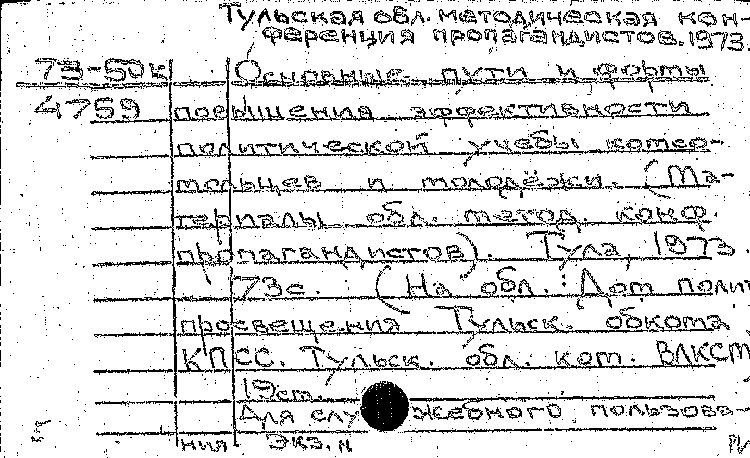 Тульская обл. методическая кон-
ференция пропагандистов. 1973.
73-50к Основные пути и формы
4759 повышения эффективности
политической учебы комсо-
мольцев и молодёжи. (Ма-
териалы обл. метод. конф.
пропагандистов). Тула, 1973.
73с. (На обл.: Дом полит
просвещения Тульск. обкома
КПСС. Тульск. обл. ком. ВЛКСМ
19см.
Для служебного пользова-
ния Экз. N